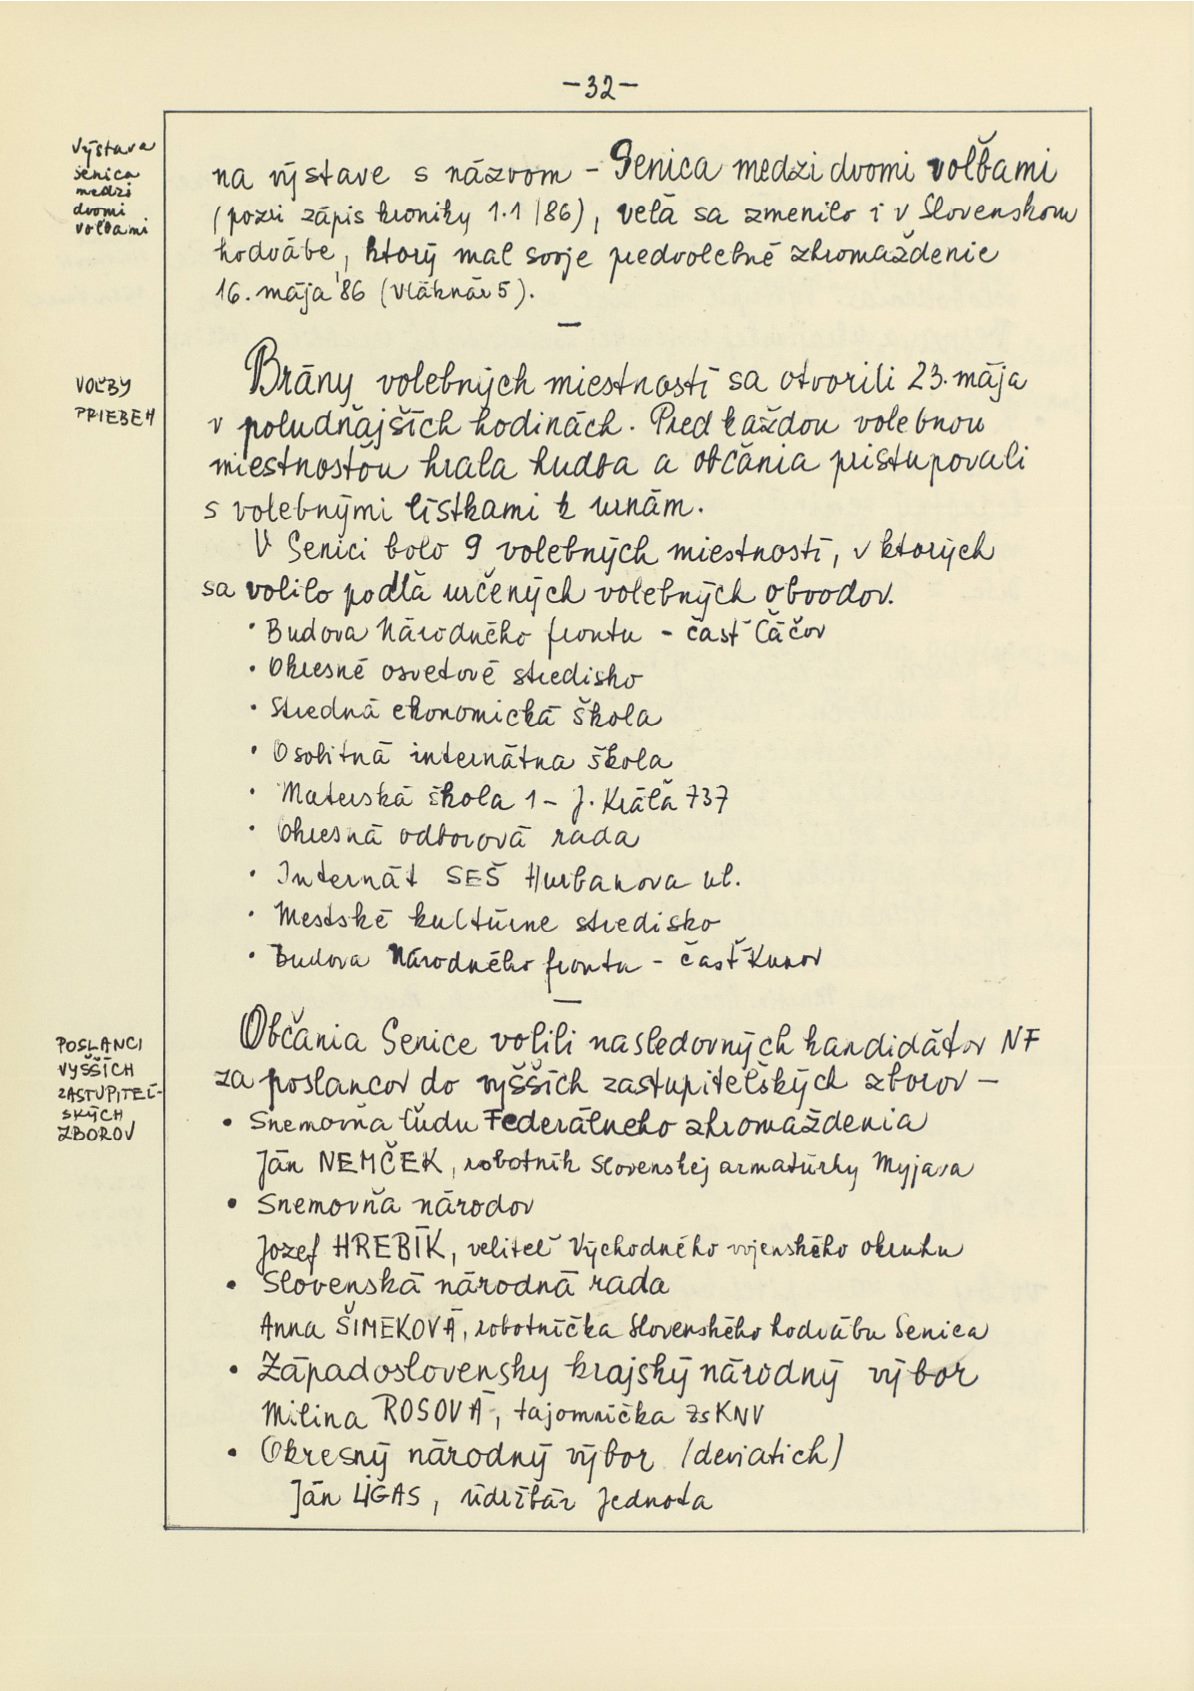 -32-
Výstava
Senica
medzi
dvomi
voľbami
na výstave s názvom - Senica medzi dvomi voľbami
(pozri zápis kroniky 1.1/86), veľa sa zmenilo i v Slovenskom
hodvábe, ktorý mal svoje predvolebné zhromaždenie
16. mája '86 (Vláknár 5).
—
VOĽBY
PRIEBEH
Brány volebných miestností sa otvorili 23. mája
v poludňajších hodinách. Pred každou volebnou
miestnosťou hrala hudba a občania pristupovali
s volebnými lístkami k urnám.
V Senici bolo 9 volebných miestností, v ktorých
sa volilo podľa určených volebných obvodov.
• Budova Národného frontu - časť Čáčov
• Okresné osvetové stredisko
• Stredná ekonomická škola
• Osobitná internátna škola
• Materská škola 1 - J. Kráľa 737
• Okresná odborová rada
• Internát SEŠ Hurbanova ul.
• Mestské kultúrne stredisko
• Budova Národného frontu - časť Kunov
—
POSLANCI
VYŠŠÍCH
ZASTUPITEĽ-
SKÝCH
ZBOROV
Občania Senice volili nasledovných kandidátov NF
za poslancov do vyšších zastupiteľských zborov -
• Snemovňa ľudu Federálneho zhromaždenia
Ján NEMČEK, robotník Slovenskej armatúrky Myjava
• Snemovňa národov
Jozef HREBÍK, veliteľ Východného vojenského okruhu
• Slovenská národná rada
Anna ŠIMEKOVÁ, robotníčka Slovenského hodvábu Senica
• Západoslovenský krajský národný výbor
Milina ROSOVÁ, tajomníčka ZsKNV
• Okresný národný výbor (deviatich)
Ján LIGAS, údržbár Jednota